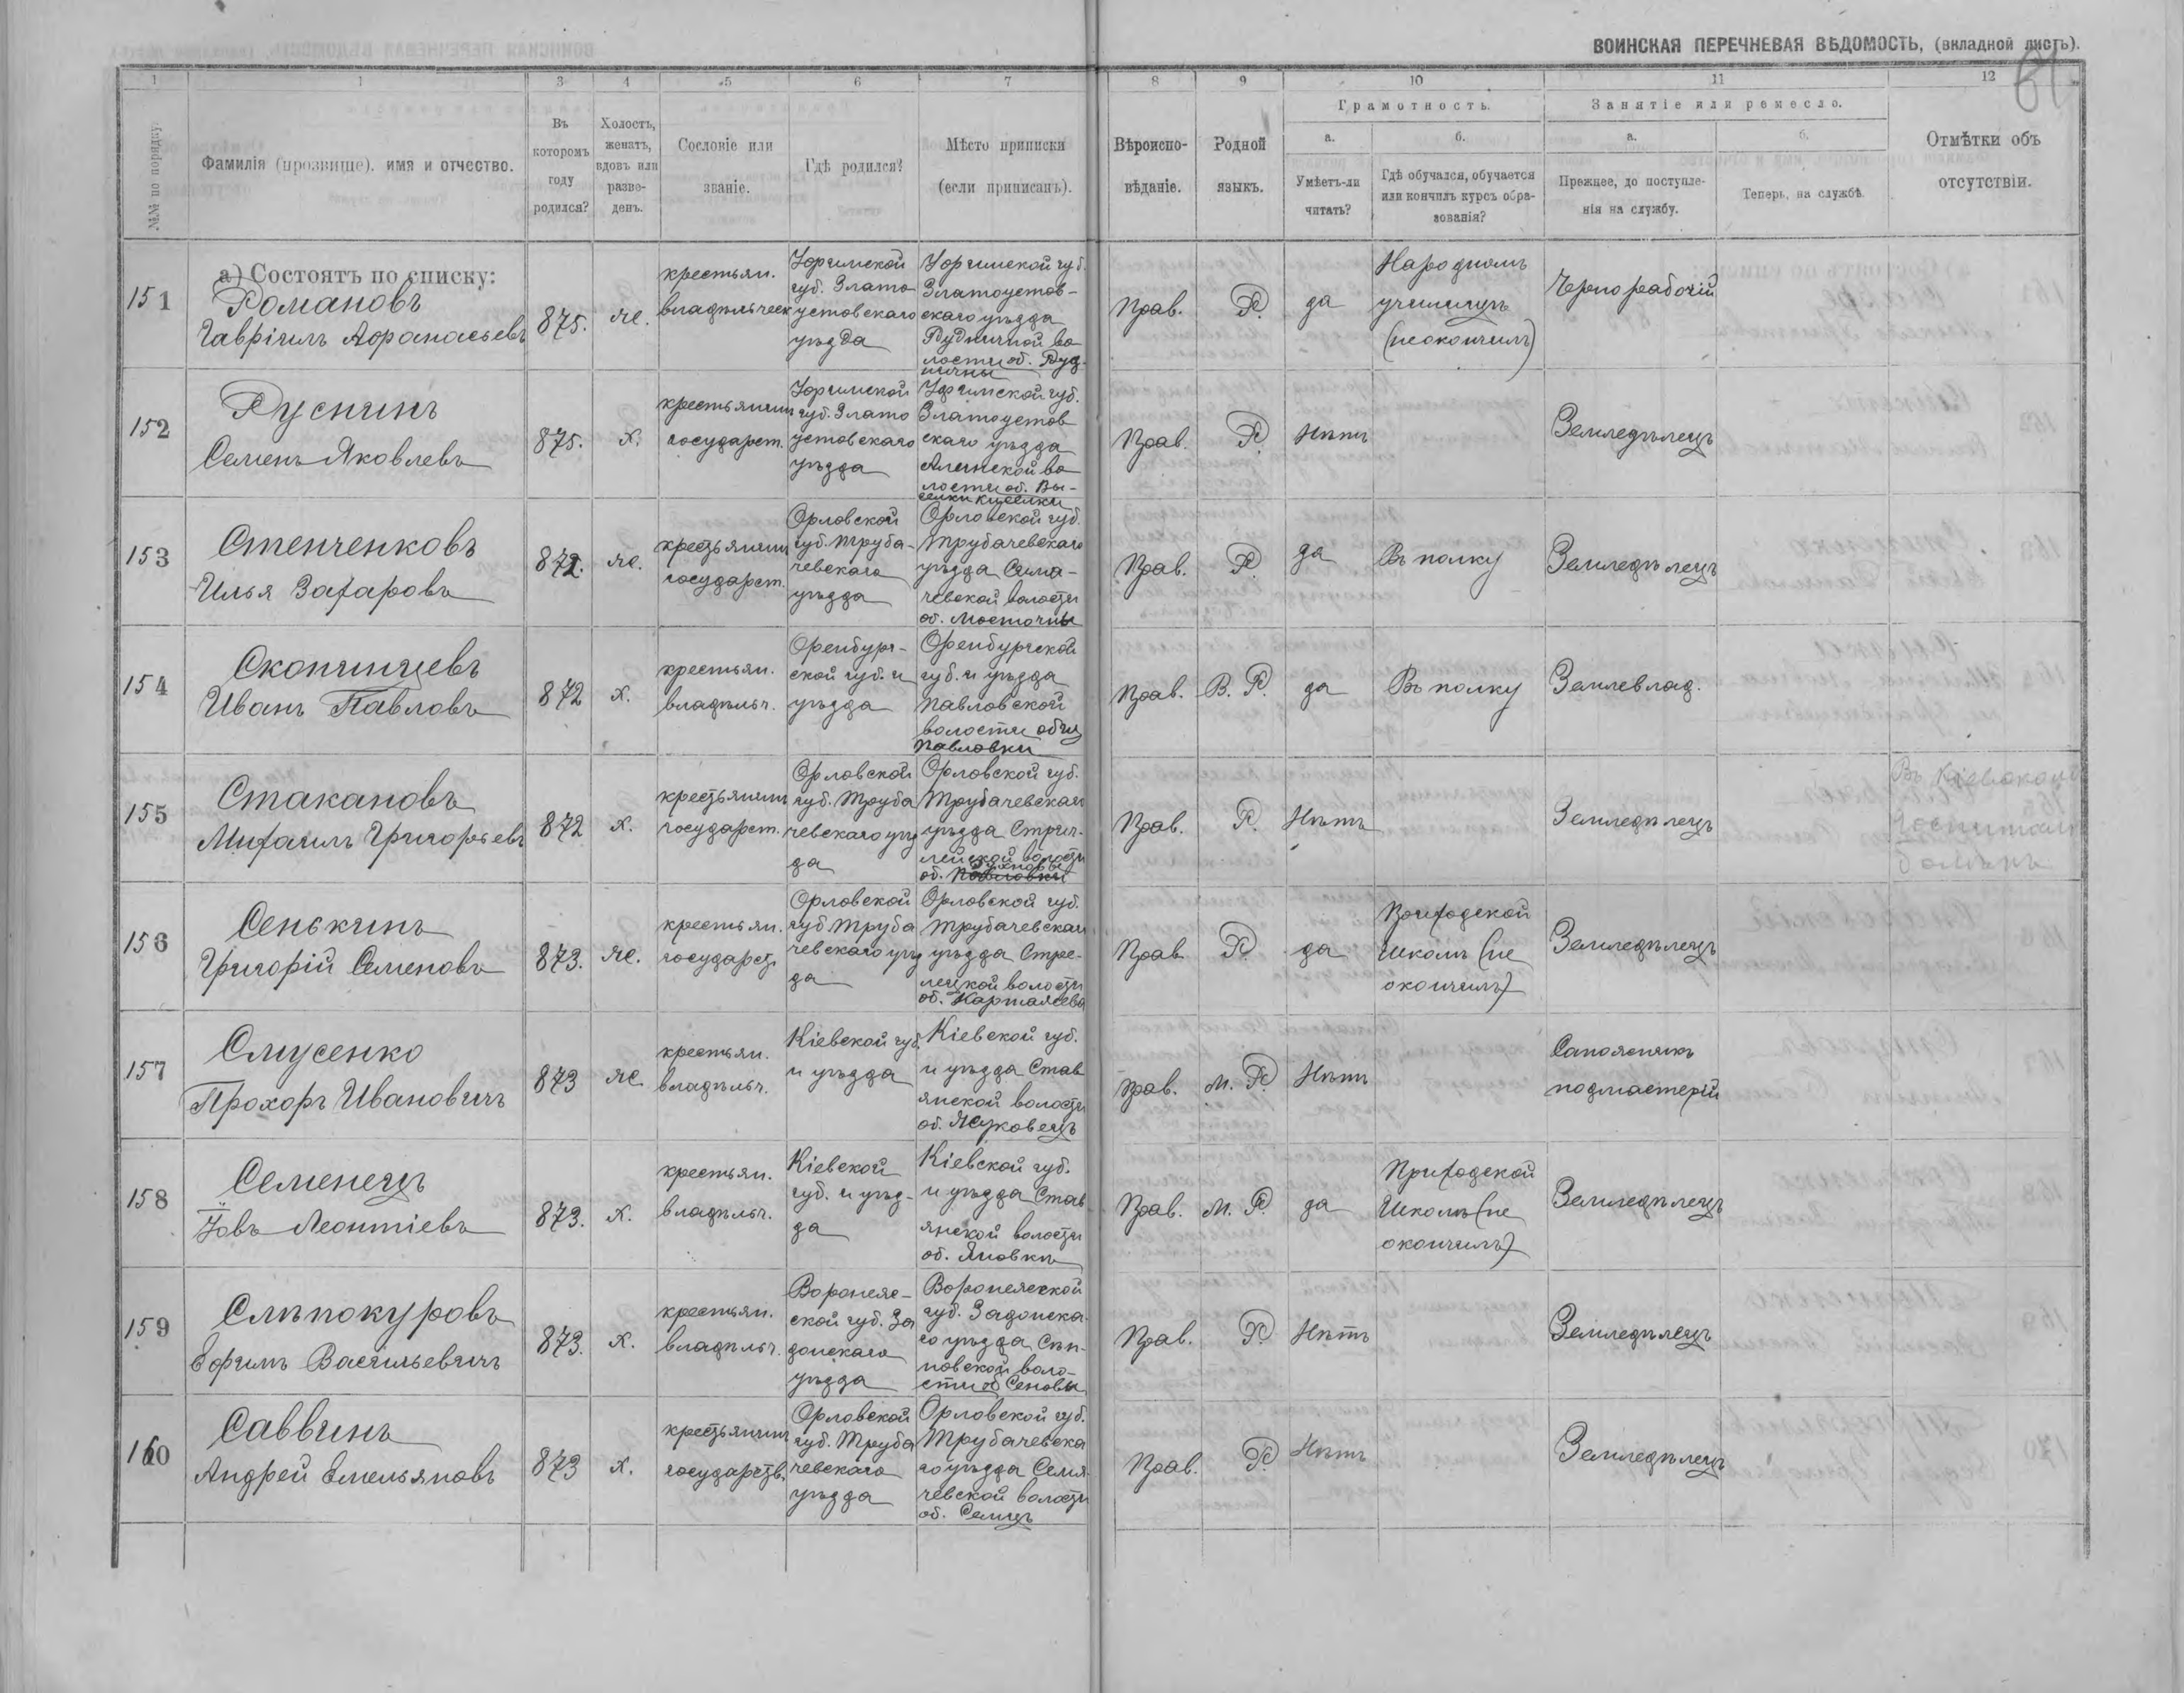 ВОИНСКАЯ ПЕРЕЧНЕВАЯ ВѢДОМОСТЬ, (вкладной листъ).
61
1 1 3 4 5 6 7 8 9 10 11 12
№№ по порядку.
Фамилія (прозвище), имя и отчество.
Въ которомъ году родился?
Холостъ, женатъ, вдовъ или разведенъ.
Сословіе или званіе.
Гдѣ родился?
Мѣсто приписки (если приписанъ).
Вѣроисповѣданіе.
Родной языкъ.
Грамотность.
а. Умѣетъ-ли читать?
б. Гдѣ обучался, обучается или кончилъ курсъ образованія?
Занятіе или ремесло.
а. Прежнее, до поступленія на службу.
б. Теперь, на службѣ.
Отмѣтки объ отсутствіи.
а) Состоятъ по списку:
151 Романовъ Гавріилъ Афонасьевъ
875. же.
крестьян. владѣльческ
Уфимской губ. Злато устовскаго уѣзда
Уфимской губ. Златоустов-скаго уѣзда Рудничной во лости об. Руд-ничны
Прав. Р. да
Народномъ училищѣ (не окончилъ)
Чернорабочій
152 Руснинъ Семенъ Яковлевъ
875. х.
крестьянин государст.
Уфимской губ. Злато устовскаго уѣзда
Уфимской губ. Златоустов скаго уѣзда Алинской во лости об. Вы-селки Киселки
Прав. Р. Нѣтъ
Земледѣлецъ
153 Стенченковъ Илья Захаровъ
872. же.
крестьянин государст.
Орловской губ. Труба-чевскаго уѣзда
Орловской губ. Трубачевскаго уѣзда Сема-чевской волости об. Мосточны
Прав. Р. да
Въ полку
Земледѣлецъ
154 Скопинцевъ Иванъ Павловъ
872 х.
крестьян. владѣльч.
Оренбург-ской губ. и уѣзда
Оренбургской губ. и уѣзда Павловской волости общ Павловки
Прав. В. Р. да
Въ полку
Землевлад.
155 Стакановъ Михаилъ Григорьевъ
872 х.
крестьянин государст.
Орловской губ. Труба чевскаго уѣз да
Орловской губ. Трубачевскаго уѣзда волости об. Павловки
Прав. Р. Нѣтъ
Земледѣлецъ
Въ Кіевскомъ госпиталѣ боленъ
156 Сенькинъ Григорій Семеновъ
873. же.
крестьян. государст.
Орловской губ. Труба чевскаго уѣз да
Орловской губ. Трубачевскаго уѣзда Стре-лецкой волости об. Карташева
Прав Р да
Приходской школѣ (не окончилъ)
Земледѣлецъ
157 Слусенко Прохоръ Ивановичъ
873 же
крестьян. владѣльч.
Кіевской губ. и уѣзда
Кіевской губ. и уѣзда Став янской волости об. Жуковецъ
Прав. М. Р. Нѣтъ
Сапожникъ подмастерій
158 Семенецъ Іовъ Леонтіевъ
873. х.
крестьян. владѣльч.
Кіевской губ. и уѣз-да
Кіевской губ. и уѣзда Став янской волости об. Яновки
Прав. М. Р. да
Приходской школѣ (не окончилъ)
Земледѣлецъ
159 Слѣпокуровъ Ефимъ Васильевичъ
873. х.
крестьян. владѣльч.
Воронеж-ской губ. За донскаго уѣзда
Воронежской губ. Задонска го уѣзда Сѣн-новской воло-сти об Сеновы
Прав. Р. Нѣтъ
Земледѣлецъ
160 Саввинъ Андрей Емельяновъ
873 х.
крестьянин государств.
Орловской губ. Труба чевскаго уѣзда
Орловской губ. Трубачевска го уѣзда Семя чевской волости об. Семцъ
Прав. Р. Нѣтъ
Земледѣлецъ